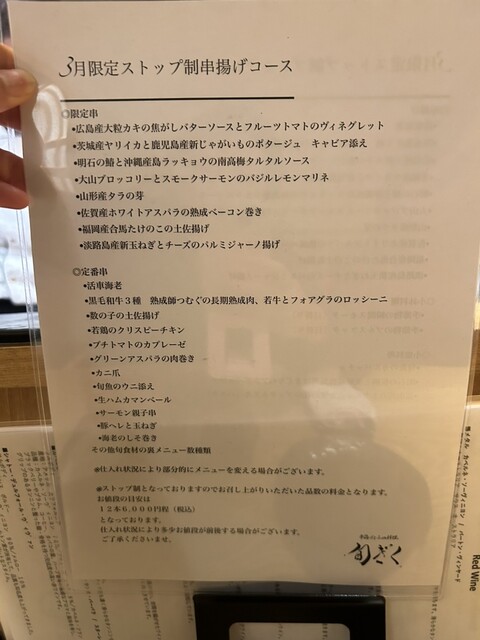 3月限定ストップ制串揚げコース
◎限定串
•広島産大粒カキの焦がしバターソースとフルーツトマトのヴィネグレット
•茨城産ヤリイカと鹿児島産新じゃがいものポタージュ　キャビア添え
•明石の鰆と沖縄産島ラッキョウの南高梅タルタルソース
•大山ブロッコリーとスモークサーモンのバジルレモンマリネ
•山形産タラの芽
•佐賀産ホワイトアスパラの熟成ベーコン巻き
•福岡産合馬たけのこの土佐揚げ
•淡路島産新玉ねぎとチーズのパルミジャーノ揚げ
◎定番串
•活車海老
•黒毛和牛3種　熟成師つむぐの長期熟成肉、若牛とフォアグラのロッシーニ
•数の子の土佐揚げ
•若鶏のクリスピーチキン
•プチトマトのカプレーゼ
•グリーンアスパラの肉巻き
•カニ爪
•旬魚のウニ添え
•生ハムカマンベール
•サーモン親子串
•豚ヘレと玉ねぎ
•海老のしそ巻き
その他旬食材の裏メニュー数種類
※仕入れ状況により部分的にメニューを変える場合がございます。
※ストップ制となっておりますのでお召し上がりいただいた品数の料金となります。
お値段の目安は
12本6,000円程（税込）
となっております。
仕入れ状況により多少お値段が前後する場合がございます。
ご了承くださいませ。
旬ざく
Red Wine